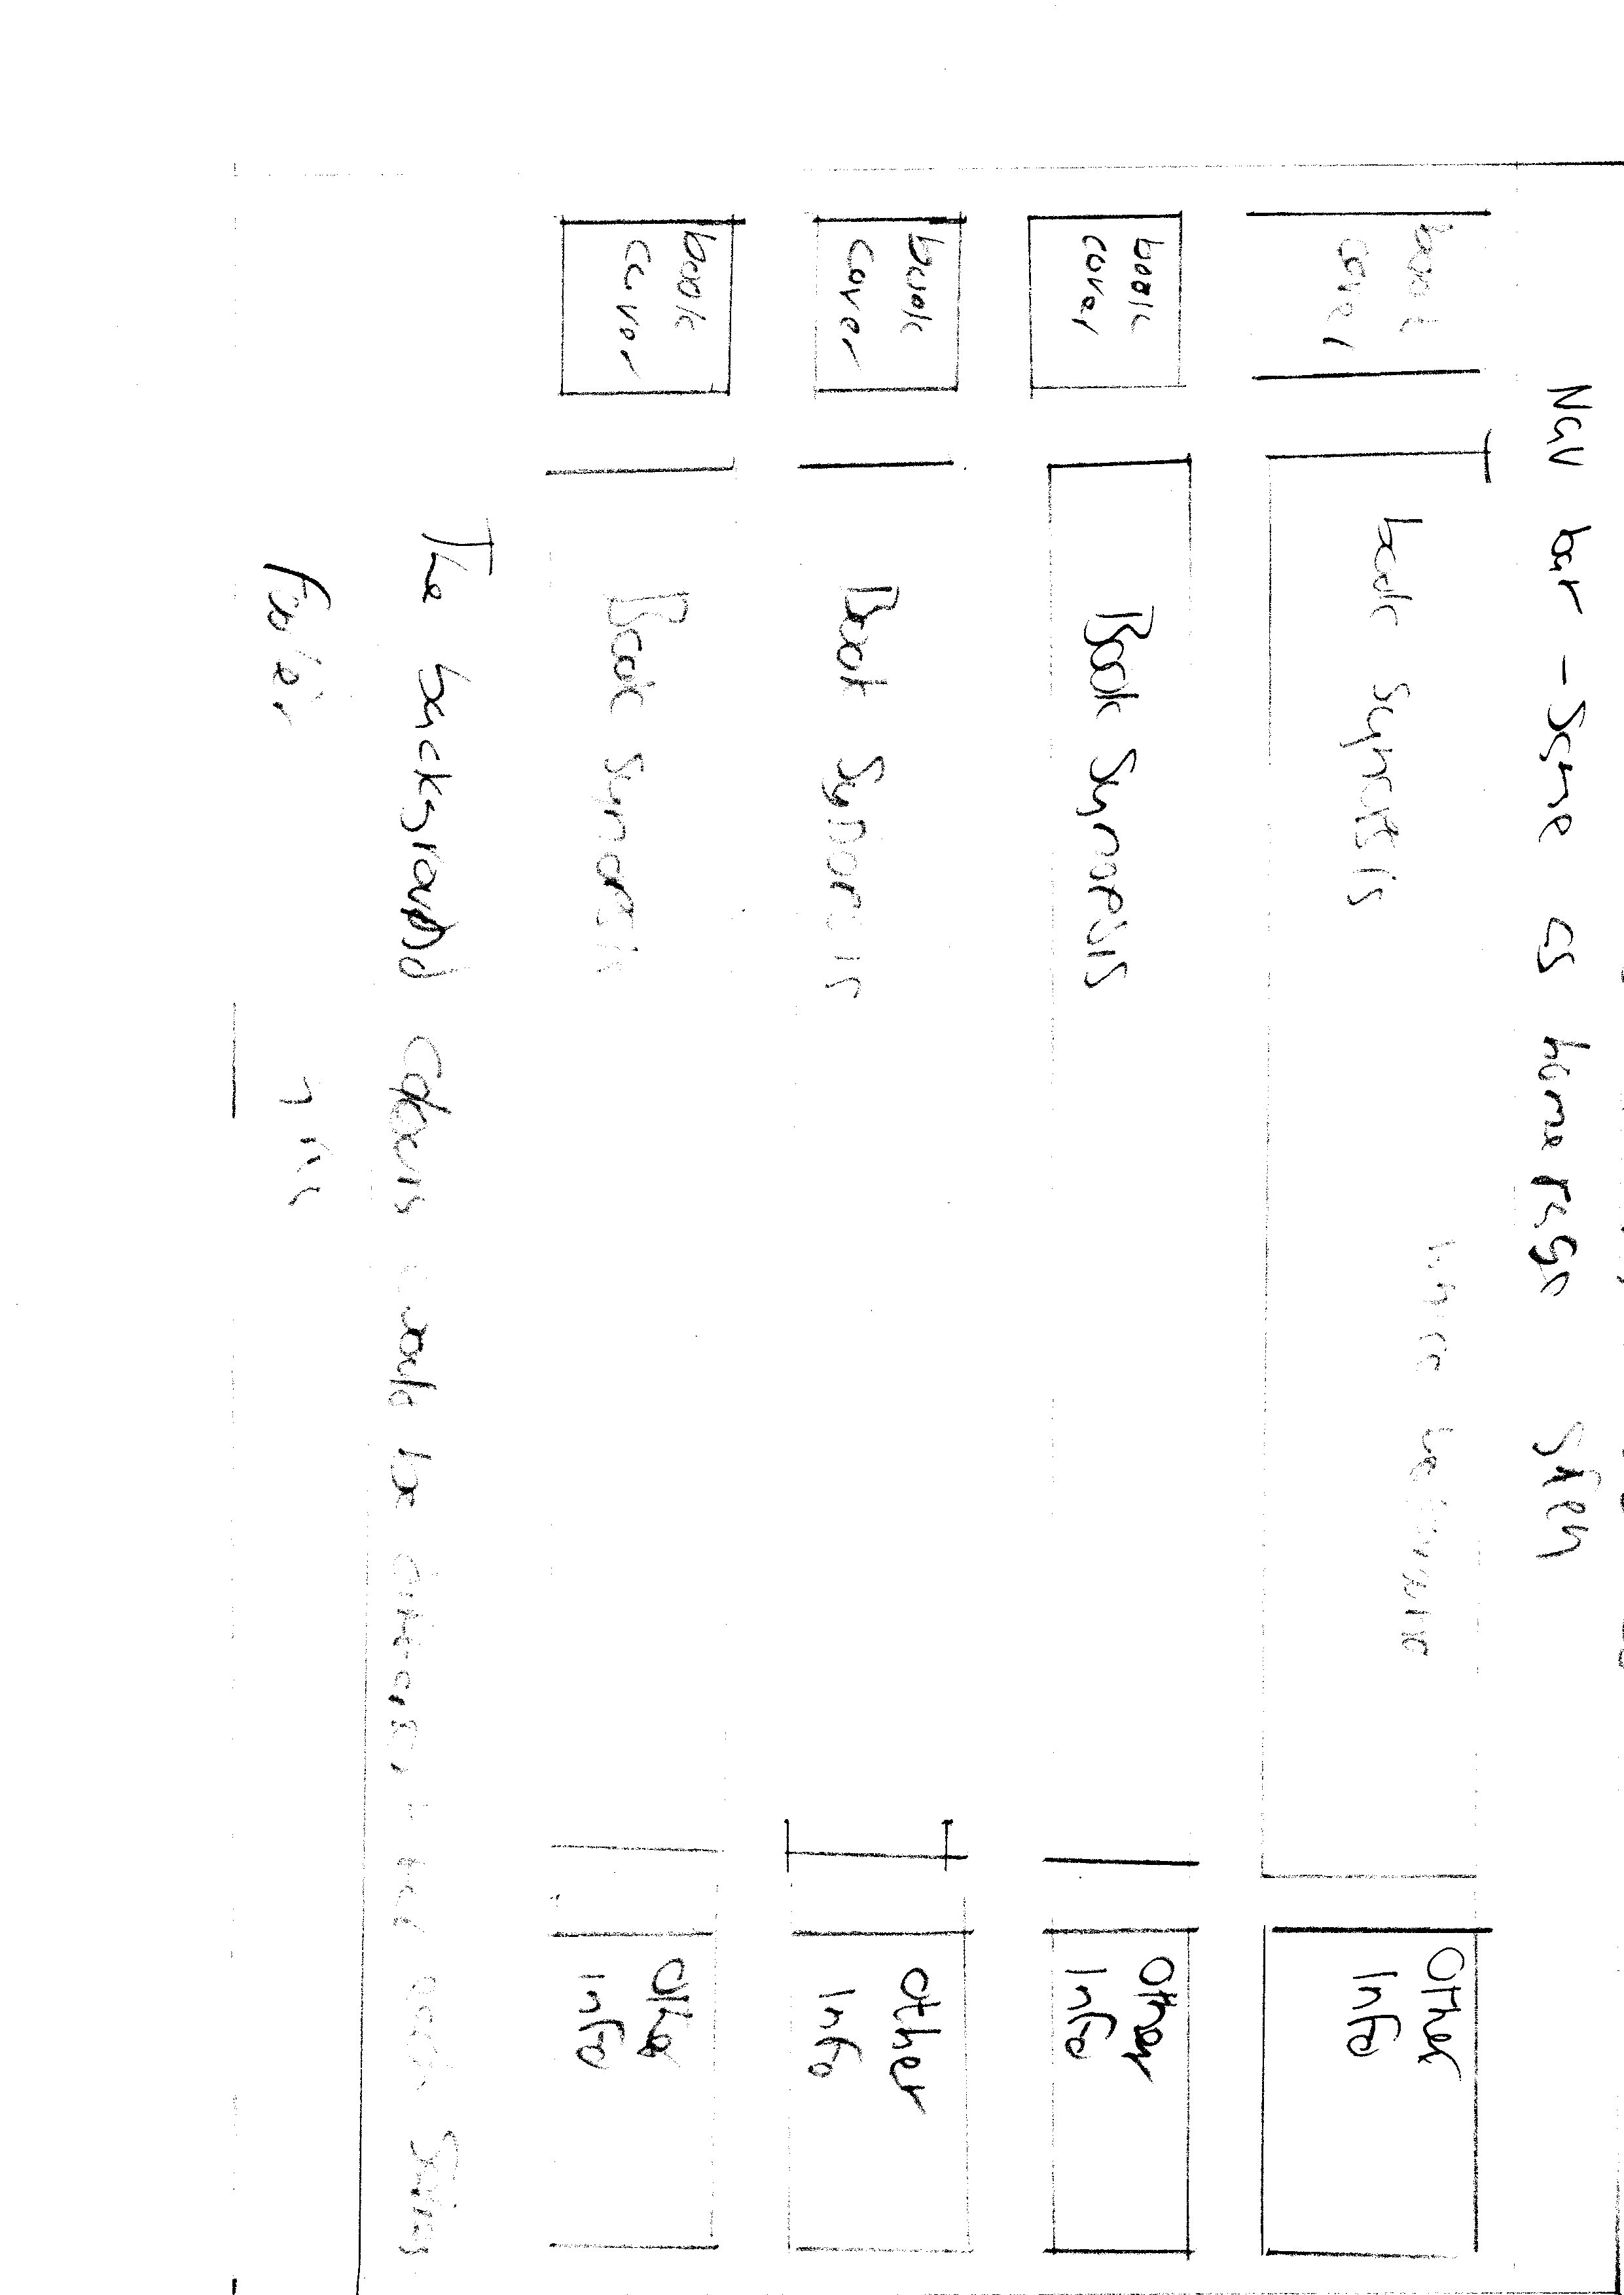 Nav bar - Same as home Page
book
cover
book Synopsis
Other
Info
book
cover
Book Synopsis
Other
Info
book
cover
Book Synopsis
Other
Info
book
cover
Book Synopsis
Othe
Info
The background colours would be different for each series
Footer